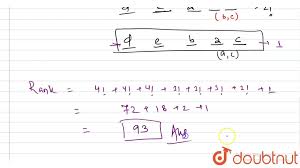 a c a → 2!
(b, c)
d e b a c → 1
(a, c)
Rank = 4! + 4! + 4! + 3! + 3! + 3! + 2! + 1
= 72 + 18 + 2 + 1
= 93 Ans
doubtnut